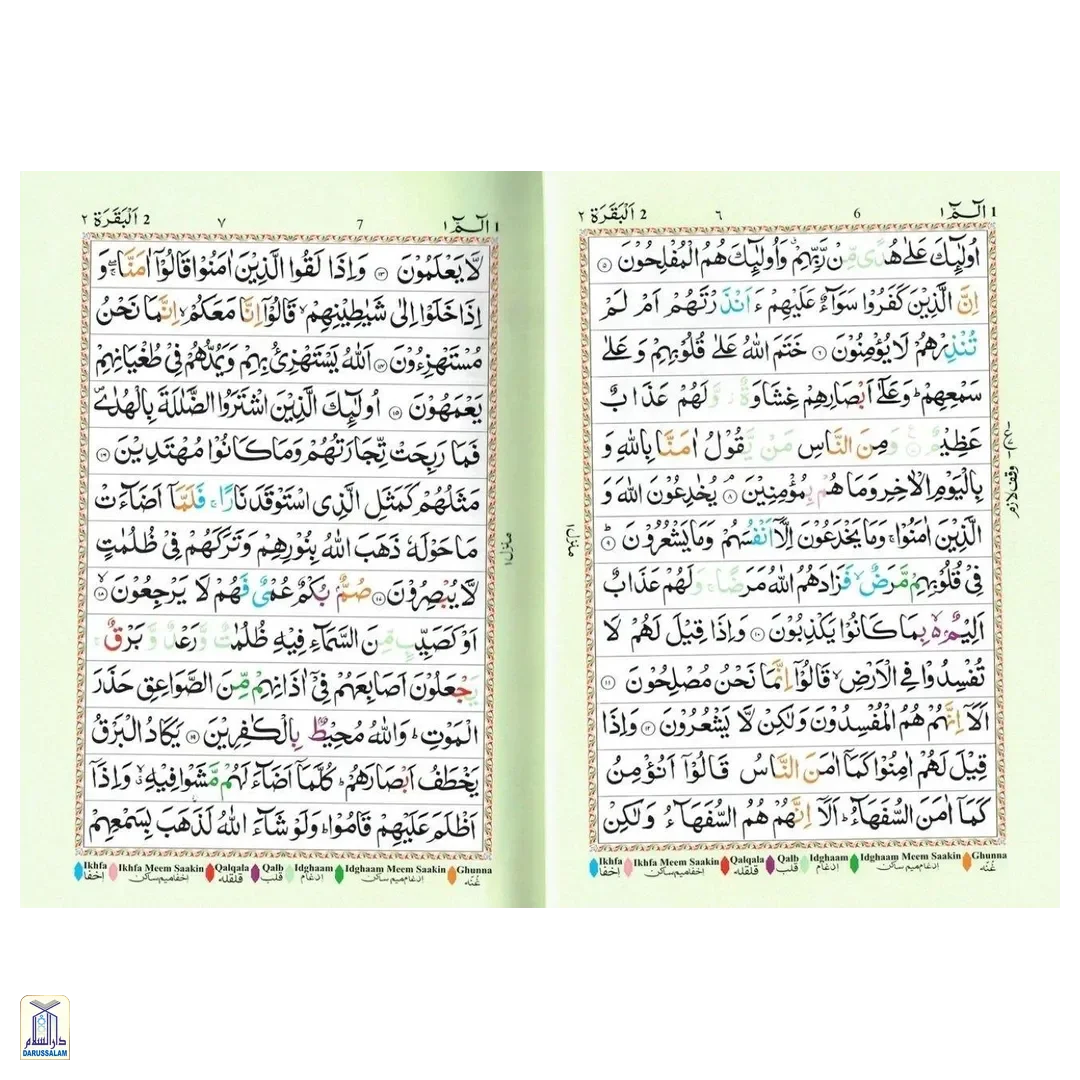 1 الٓمّٓ ١
6
٦
2 اَلْبَقَرَة ٢
اُولٰٓئِكَ عَلٰى هُدًى مِّنْ رَّبِّهِمْ ۙ وَاُولٰٓئِكَ هُمُ الْمُفْلِحُوْنَ ۝٥
اِنَّ الَّذِيْنَ كَفَرُوْا سَوَآءٌ عَلَيْهِمْ ءَاَنْذَرْتَهُمْ اَمْ لَمْ
تُنْذِرْهُمْ لَا يُؤْمِنُوْنَ ۝٦ خَتَمَ اللّٰهُ عَلٰى قُلُوْبِهِمْ وَعَلٰى
سَمْعِهِمْ ؕ وَعَلٰٓى اَبْصَارِهِمْ غِشَاوَةٌ ؗ وَّلَهُمْ عَذَابٌ
عَظِيْمٌ ۝٧ وَمِنَ النَّاسِ مَنْ يَّقُوْلُ اٰمَنَّا بِاللّٰهِ وَ
بِالْيَوْمِ الْاٰخِرِ وَمَا هُمْ بِمُؤْمِنِيْنَ ۝٨ يُخٰدِعُوْنَ اللّٰهَ وَ
الَّذِيْنَ اٰمَنُوْا ۚ وَمَا يَخْدَعُوْنَ اِلَّاۤ اَنْفُسَهُمْ وَمَا يَشْعُرُوْنَ ۝٩
فِيْ قُلُوْبِهِمْ مَّرَضٌ ۙ فَزَادَهُمُ اللّٰهُ مَرَضًا ۚ وَلَهُمْ عَذَابٌ
اَلِيْمٌۢ ۙ۬ بِمَا كَانُوْا يَكْذِبُوْنَ ۝١٠ وَاِذَا قِيْلَ لَهُمْ لَا
تُفْسِدُوْا فِى الْاَرْضِ ۙ قَالُوْۤا اِنَّمَا نَحْنُ مُصْلِحُوْنَ ۝١١
اَلَاۤ اِنَّهُمْ هُمُ الْمُفْسِدُوْنَ وَلٰكِنْ لَّا يَشْعُرُوْنَ ۝١٢ وَاِذَا
قِيْلَ لَهُمْ اٰمِنُوْا كَمَاۤ اٰمَنَ النَّاسُ قَالُوْۤا اَنُؤْمِنُ
كَمَاۤ اٰمَنَ السُّفَهَآءُ ؕ اَلَاۤ اِنَّهُمْ هُمُ السُّفَهَآءُ وَلٰكِنْ
وقف لازم
منزل ١
Ikhfa Ikhfa Meem Saakin Qalqala Qalb Idghaam Idghaam Meem Saakin Ghunna
اِخفا اِخفا میم ساکن قلقله قلب اِدغام اِدغام میم ساکن غُنّه
1 الٓمّٓ ١
7
٧
2 اَلْبَقَرَة ٢
لَّا يَعْلَمُوْنَ ۝١٣ وَاِذَا لَقُوا الَّذِيْنَ اٰمَنُوْا قَالُوْۤا اٰمَنَّا ۖۚ وَ
اِذَا خَلَوْا اِلٰى شَيٰطِيْنِهِمْ ۙ قَالُوْۤا اِنَّا مَعَكُمْ ۙ اِنَّمَا نَحْنُ
مُسْتَهْزِءُوْنَ ۝١٤ اَللّٰهُ يَسْتَهْزِئُ بِهِمْ وَيَمُدُّهُمْ فِيْ طُغْيَانِهِمْ
يَعْمَهُوْنَ ۝١٥ اُولٰٓئِكَ الَّذِيْنَ اشْتَرَوُا الضَّلٰلَةَ بِالْهُدٰى ۪
فَمَا رَبِحَتْ تِّجَارَتُهُمْ وَمَا كَانُوْا مُهْتَدِيْنَ ۝١٦
مَثَلُهُمْ كَمَثَلِ الَّذِى اسْتَوْقَدَ نَارًا ۚ فَلَمَّاۤ اَضَآءَتْ
مَا حَوْلَهٗ ذَهَبَ اللّٰهُ بِنُوْرِهِمْ وَتَرَكَهُمْ فِيْ ظُلُمٰتٍ
لَّا يُبْصِرُوْنَ ۝١٧ صُمٌّۢ بُكْمٌ عُمْيٌ فَهُمْ لَا يَرْجِعُوْنَ ۙ۝١٨
اَوْ كَصَيِّبٍ مِّنَ السَّمَآءِ فِيْهِ ظُلُمٰتٌ وَّرَعْدٌ وَّبَرْقٌ ۚ
يَجْعَلُوْنَ اَصَابِعَهُمْ فِيْۤ اٰذَانِهِمْ مِّنَ الصَّوَاعِقِ حَذَرَ
الْمَوْتِ ؕ وَاللّٰهُ مُحِيْطٌۢ بِالْكٰفِرِيْنَ ۝١٩ يَكَادُ الْبَرْقُ
يَخْطَفُ اَبْصَارَهُمْ ؕ كُلَّمَاۤ اَضَآءَ لَهُمْ مَّشَوْا فِيْهِ ۙ وَاِذَاۤ
اَظْلَمَ عَلَيْهِمْ قَامُوْا ؕ وَلَوْ شَآءَ اللّٰهُ لَذَهَبَ بِسَمْعِهِمْ
منزل ١
Ikhfa Ikhfa Meem Saakin Qalqala Qalb Idghaam Idghaam Meem Saakin Ghunna
اِخفا اِخفا میم ساکن قلقله قلب اِدغام اِدغام میم ساکن غُنّه
دار السلام
DARUSSALAM